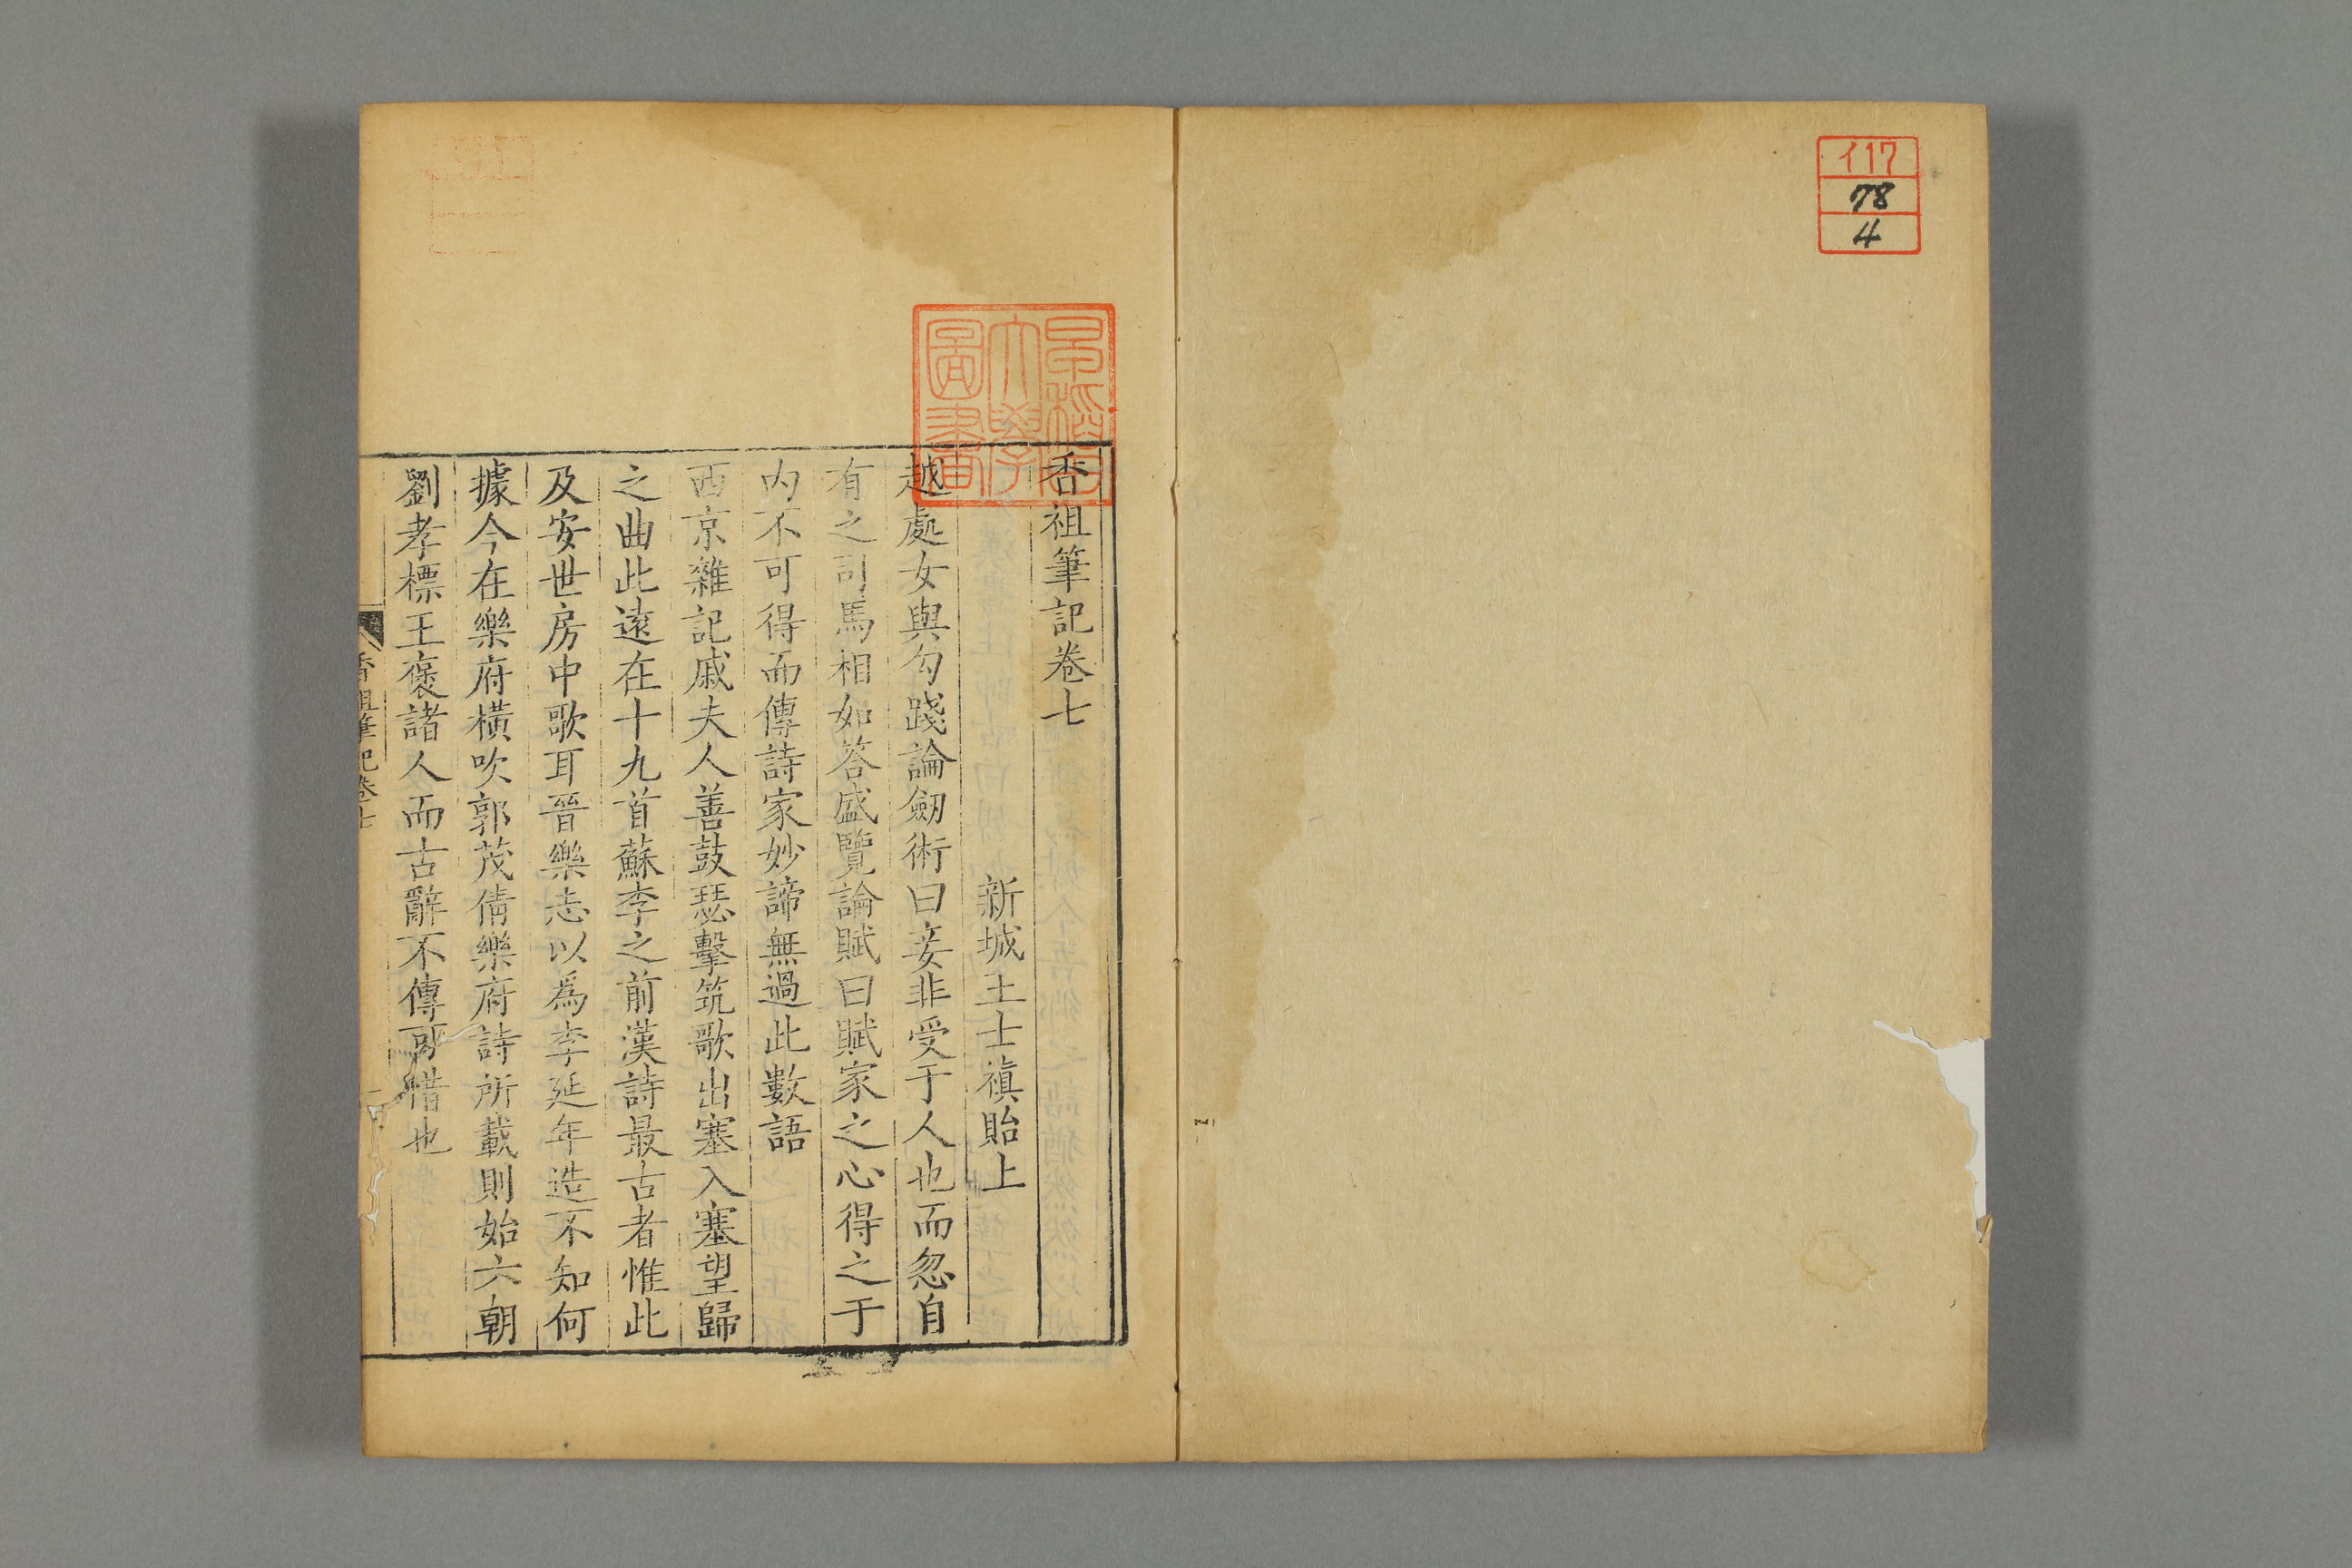 イ17
78
4
早稻田
大學
圖書
香祖筆記卷七
新城王士禛貽上
越處女與勾踐論劒術曰妾非受于人也而忽自
有之司馬相如答盛覽論賦曰賦家之心得之于
内不可得而傳詩家妙諦無過此數語
西京雜記戚夫人善鼓瑟擊筑歌出塞入塞望歸
之曲此遠在十九首蘇李之前漢詩最古者惟此
及安世房中歌耳晉樂志以爲李延年造不知何
據今在樂府橫吹郭茂倩樂府詩所載則始六朝
劉孝標王褒諸人而古辭不傳可惜也
香祖筆記卷七
一